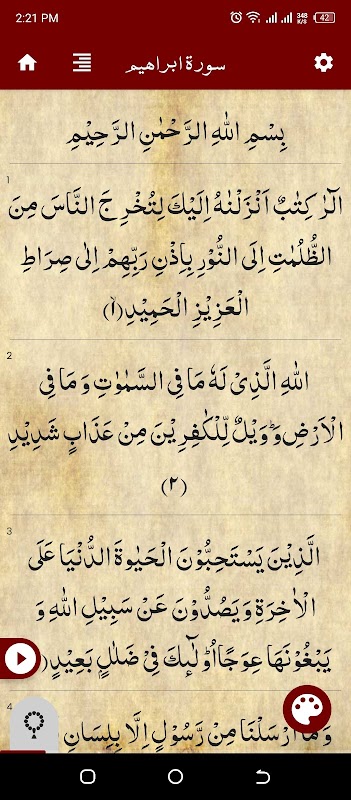 2:21 PM 348 K/S 42
سورة ابراهيم
بِسْمِ اللّٰهِ الرَّحْمٰنِ الرَّحِيْمِ
1
الٓرٰ كِتٰبٌ اَنْزَلْنٰهُ اِلَيْكَ لِتُخْرِجَ النَّاسَ مِنَ
الظُّلُمٰتِ اِلَى النُّوْرِ بِاِذْنِ رَبِّهِمْ اِلٰى صِرَاطِ
الْعَزِيْزِ الْحَمِيْدِ (۱)
2
اللّٰهِ الَّذِىْ لَهٗ مَا فِى السَّمٰوٰتِ وَ مَا فِى
الْاَرْضِ وَ وَيْلٌ لِّلْكٰفِرِيْنَ مِنْ عَذَابٍ شَدِيْدِ
(۲)
3
الَّذِيْنَ يَسْتَحِبُّوْنَ الْحَيٰوةَ الدُّنْيَا عَلَى
الْاٰخِرَةِ وَ يَصُدُّوْنَ عَنْ سَبِيْلِ اللّٰهِ وَ
يَبْغُوْنَهَا عِوَجًا اُوْلٰٓٮِٕكَ فِىْ ضَلٰلٍۭ بَعِيْدٍ (
4
وَ مَاۤ اَرْسَلْنَا مِنْ رَّسُوْلٍ اِلَّا بِلِسَانِ